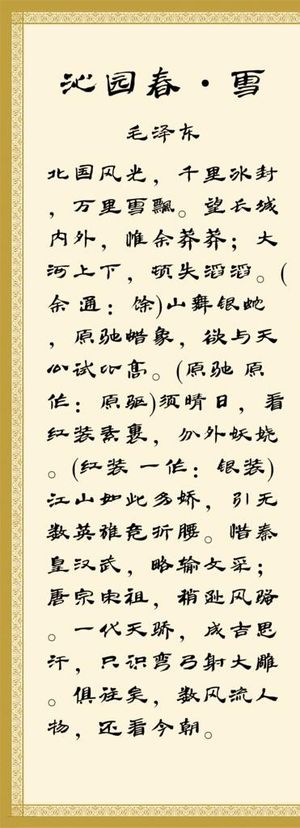 沁园春·雪
毛泽东
北国风光，千里冰封
，万里雪飘。望长城
内外，惟余莽莽；大
河上下，顿失滔滔。(
余通：馀)山舞银蛇
，原驰蜡象，欲与天
公试比高。(原驰 原
作：原驱)须晴日，看
红装素裹，分外妖娆
。(红装 一作：银装)
江山如此多娇，引无
数英雄竞折腰。惜秦
皇汉武，略输文采；
唐宗宋祖，稍逊风骚
。一代天骄，成吉思
汗，只识弯弓射大雕
。俱往矣，数风流人
物，还看今朝。